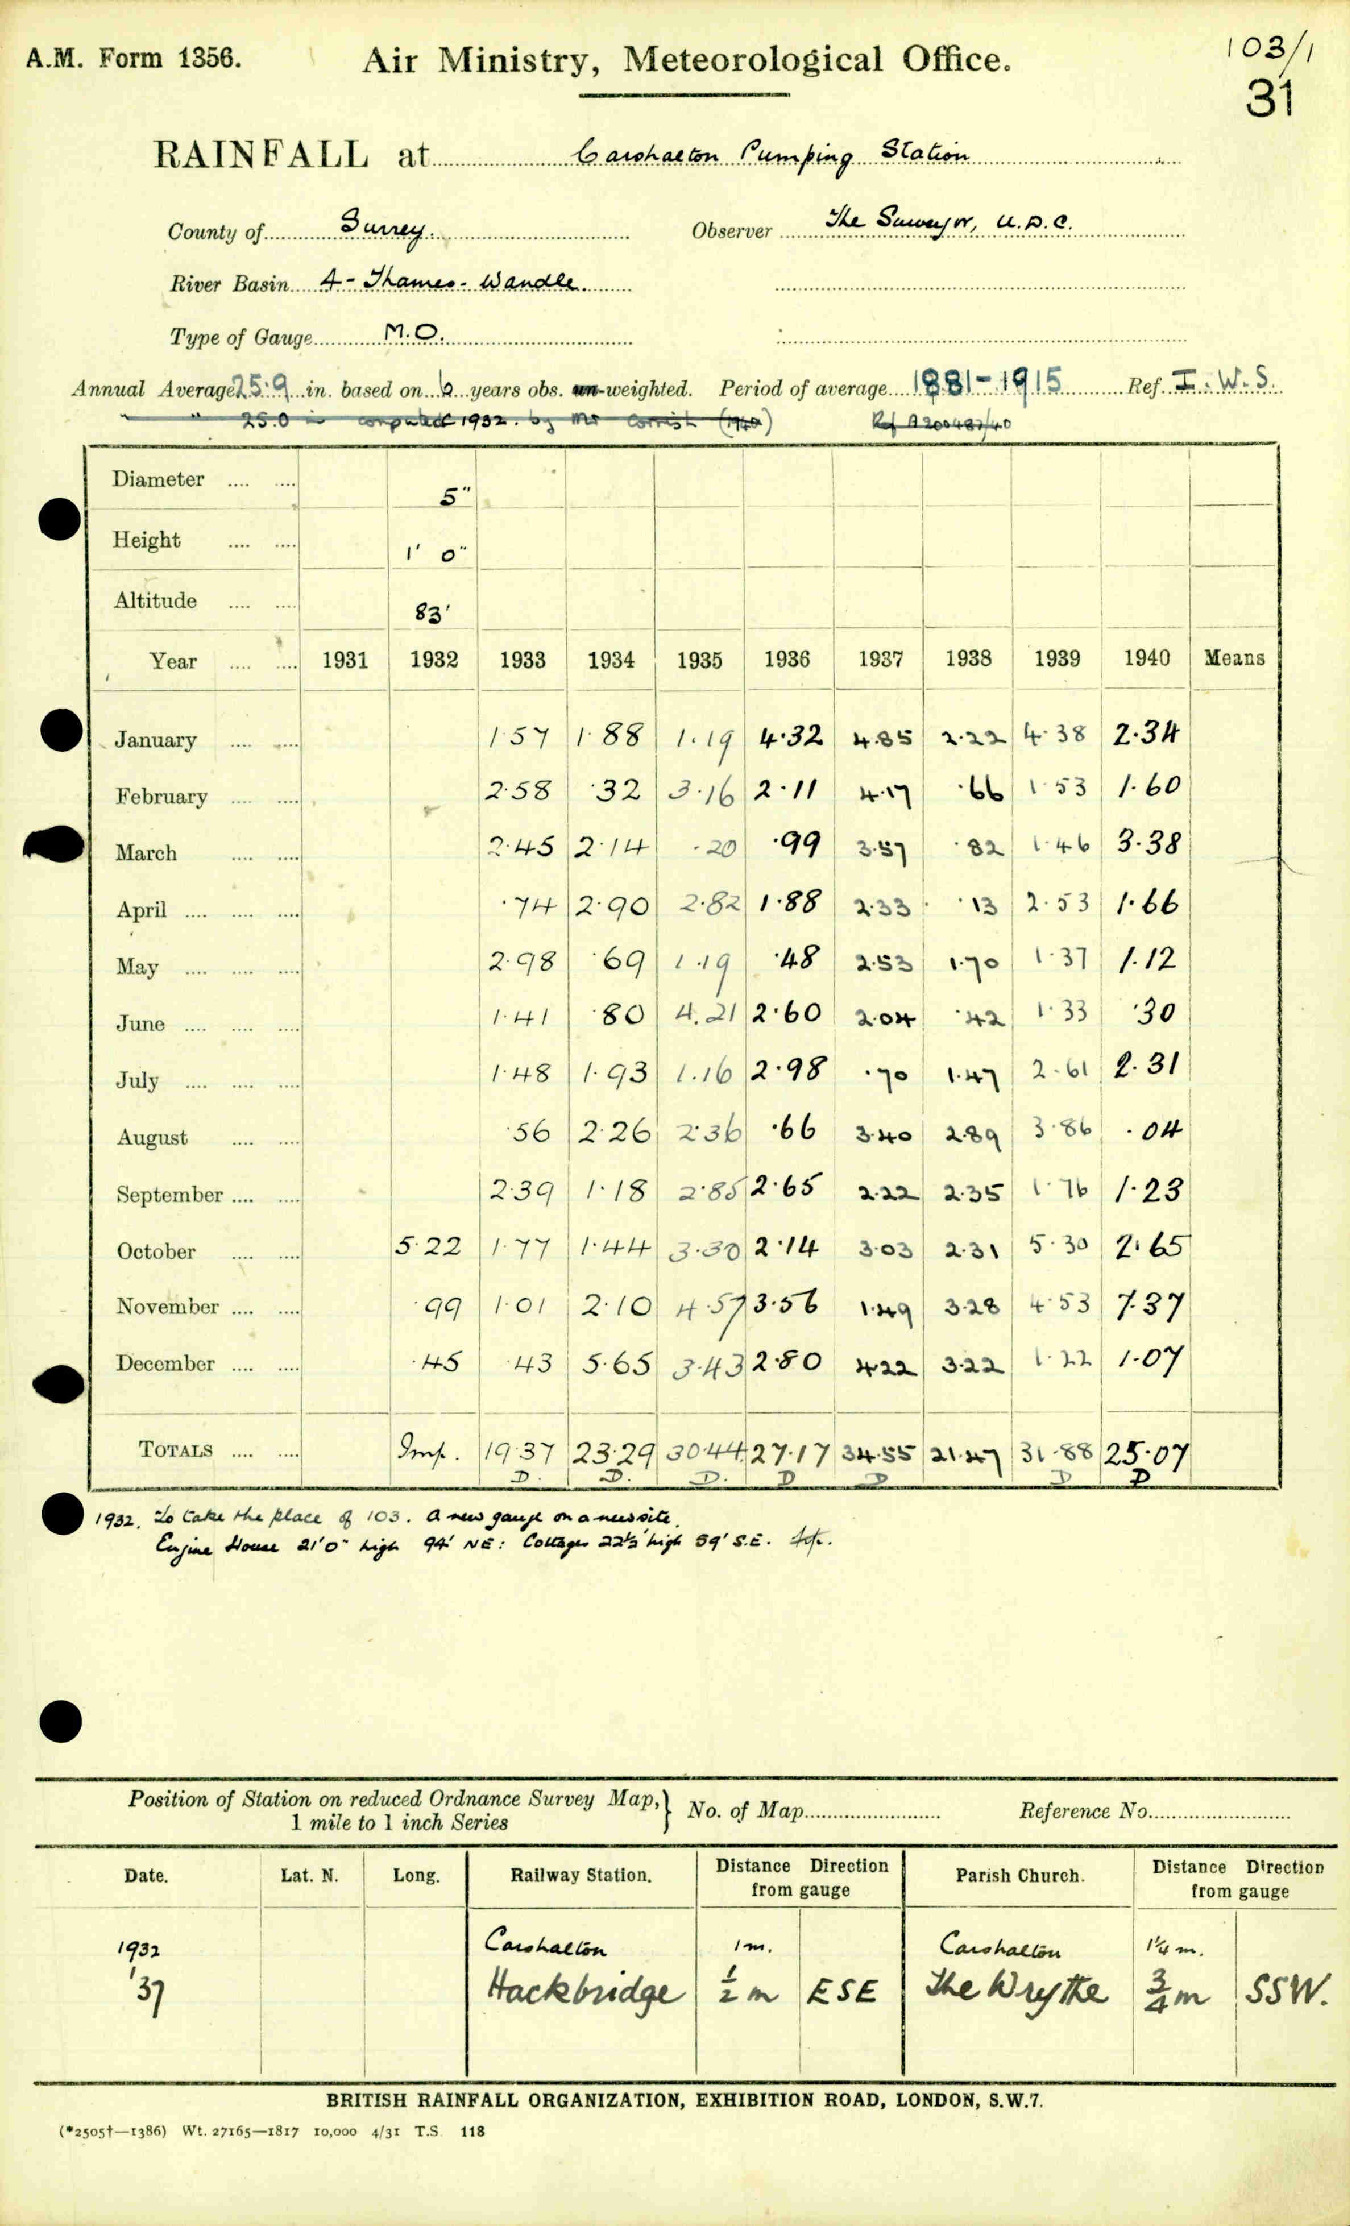 A.M. Form 1356.
Air Ministry, Meteorological Office.
103/1
31
RAINFALL at Carshalton Pumping Station
County of Surrey. Observer The Surveyor, U.D.C.
River Basin 4 - Thames - Wandle.
Type of Gauge M.O.
Annual Average 25.9 in. based on 6 years obs. un-weighted. Period of average 1881-1915 Ref. I.W.S.
" " 25.0 in computed 1932. by Mr Cornish (1940) Ref A200487/40
Diameter .... .... 5"
Height .... .... 1' 0"
Altitude .... .... 83'
Year .... .... 1931 1932 1933 1934 1935 1936 1937 1938 1939 1940 Means
January .... .... 1.57 1.88 1.19 4.32 4.85 2.22 4.38 2.34
February .... .... 2.58 .32 3.16 2.11 4.17 .66 1.53 1.60
March .... .... 2.45 2.14 .20 .99 3.57 .82 1.46 3.38
April .... .... .... .74 2.90 2.82 1.88 2.33 .13 2.53 1.66
May .... .... .... 2.98 .69 1.19 .48 2.53 1.70 1.37 1.12
June .... .... .... 1.41 .80 4.21 2.60 2.04 .42 1.33 .30
July .... .... .... 1.48 1.93 1.16 2.98 .70 1.47 2.61 2.31
August .... .... .56 2.26 2.36 .66 3.40 2.89 3.86 .04
September .... .... 2.39 1.18 2.85 2.65 2.22 2.35 1.76 1.23
October .... .... 5.22 1.77 1.44 3.30 2.14 3.03 2.31 5.30 2.65
November .... .... .99 1.01 2.10 4.57 3.56 1.49 3.28 4.53 7.37
December .... .... .45 .43 5.65 3.43 2.80 4.22 3.22 1.22 1.07
TOTALS .... .... Imp. 19.37 23.29 30.44 27.17 34.55 21.47 31.88 25.07
D. D. D. D D D D
1932. To take the place of 103. A new gauge on a new site.
Engine House 21'0" high 94' NE: Cottages 22½' high 59' S.E.
Position of Station on reduced Ordnance Survey Map,} No. of Map Reference No.
1 mile to 1 inch Series
Date. Lat. N. Long. Railway Station. Distance Direction from gauge Parish Church. Distance Direction from gauge
1932 Carshalton 1 m. Carshalton 1¼ m.
'37 Hackbridge ½ m ESE The Wrythe ¾ m SSW.
BRITISH RAINFALL ORGANIZATION, EXHIBITION ROAD, LONDON, S.W.7.
(*2505†—1386) Wt. 27165—1817 10,000 4/31 T.S. 118